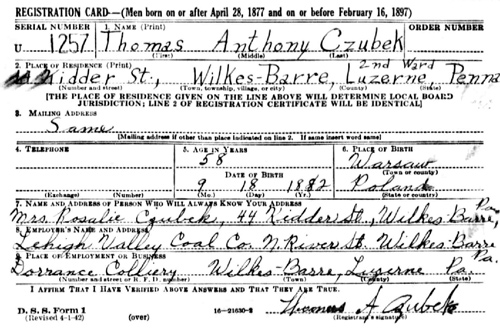 REGISTRATION CARD—(Men born on or after April 28, 1877 and on or before February 16, 1897)
SERIAL NUMBER 1. NAME (Print) ORDER NUMBER
U 1257 Thomas Anthony Czubek
(First) (Middle) (Last)
2. PLACE OF RESIDENCE (Print) 2nd Ward
44 Kidder St., Wilkes-Barre, Luzerne, Penna
(Number and street) (Town, township, village, or city) (County) (State)
[THE PLACE OF RESIDENCE GIVEN ON THE LINE ABOVE WILL DETERMINE LOCAL BOARD
JURISDICTION; LINE 2 OF REGISTRATION CERTIFICATE WILL BE IDENTICAL]
3. MAILING ADDRESS
Same
[Mailing address if other than place indicated on line 2. If same insert word same]
4. TELEPHONE 5. AGE IN YEARS 6. PLACE OF BIRTH
58 Warsaw
DATE OF BIRTH (Town or county)
9 18 1882 Poland
(Exchange) (Number) (Mo.) (Day) (Yr.) (State or country)
7. NAME AND ADDRESS OF PERSON WHO WILL ALWAYS KNOW YOUR ADDRESS
Mrs. Rosalie Czubek, 44 Kidder St., Wilkes-Barre, Pa.
8. EMPLOYER'S NAME AND ADDRESS
Lehigh Valley Coal Co. N. River St. Wilkes-Barre Pa.
9. PLACE OF EMPLOYMENT OR BUSINESS
Dorrance Colliery Wilkes-Barre, Luzerne Pa.
(Number and street or R. F. D. number) (Town) (County) (State)
I AFFIRM THAT I HAVE VERIFIED ABOVE ANSWERS AND THAT THEY ARE TRUE.
D. S. S. Form 1 Thomas A Czubek
(Revised 4-1-42) (over) 16—21630-2 (Registrant's signature)